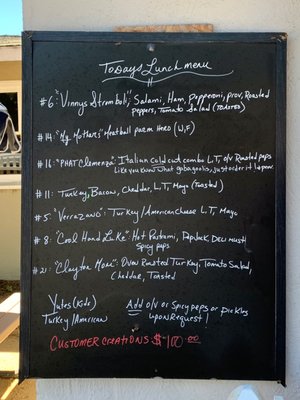 Todays Lunch menu
#6: "Vinnys Stromboli", Salami, Ham, Pepperoni, prov, Roasted
peppers, Tomato Salad (TOASTED)
#14: "My Mother's" Meatball parm Hero (W,F)
#16: "PHAT Clemenza": Italian Cold cut combo L,T, o/v Roasted peps
Like you know what gabagool is, just order it
#11: Turkey, Bacon, Cheddar, L,T, Mayo (Toasted)
#5: "Verrazano": Turkey/American Cheese L,T, Mayo
#8: "Cool Hand Luke" Hot Pastrami, Deli Must
Spicy peps
#21: Oven Roasted Turkey, Tomato Salad,
Cheddar, Toasted
Yutes (Kids)
Turkey/American
Add o/v or Spicy peps or Pickles
upon Request!
CUSTOMER CREATIONS: $100.00